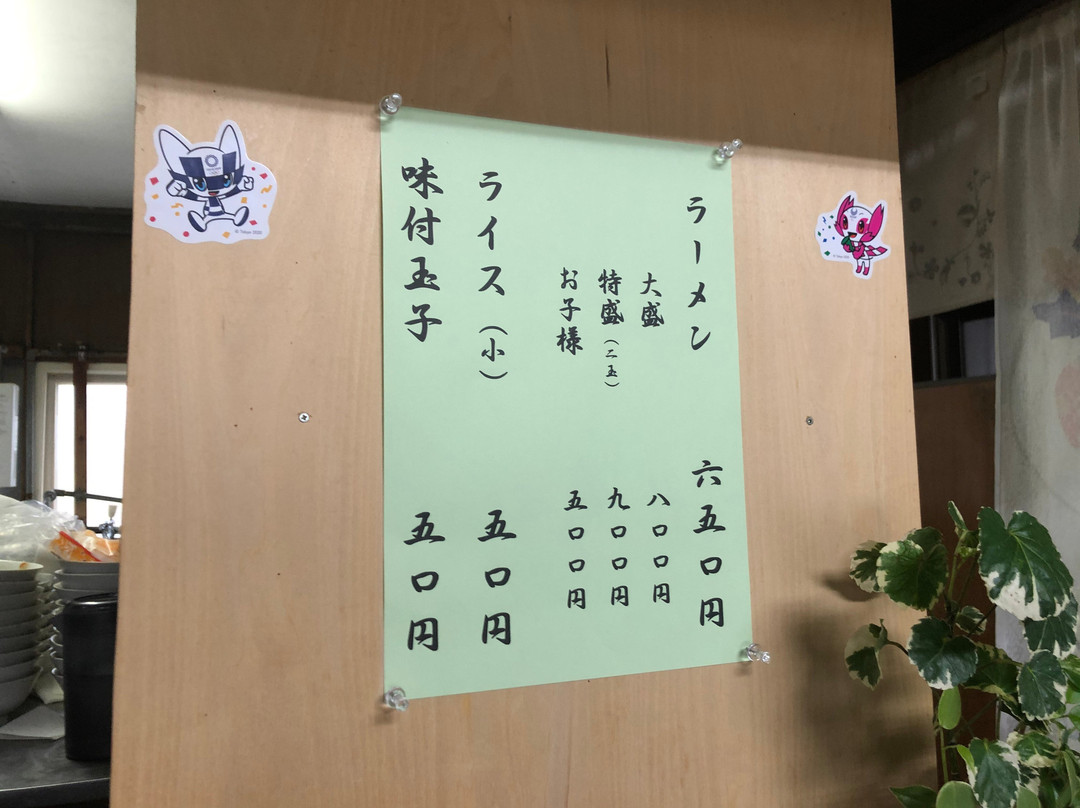 ラーメン 六五〇円
大盛 八〇〇円
特盛(二玉) 九〇〇円
お子様 五〇〇円
ライス(小) 五〇円
味付玉子 五〇円